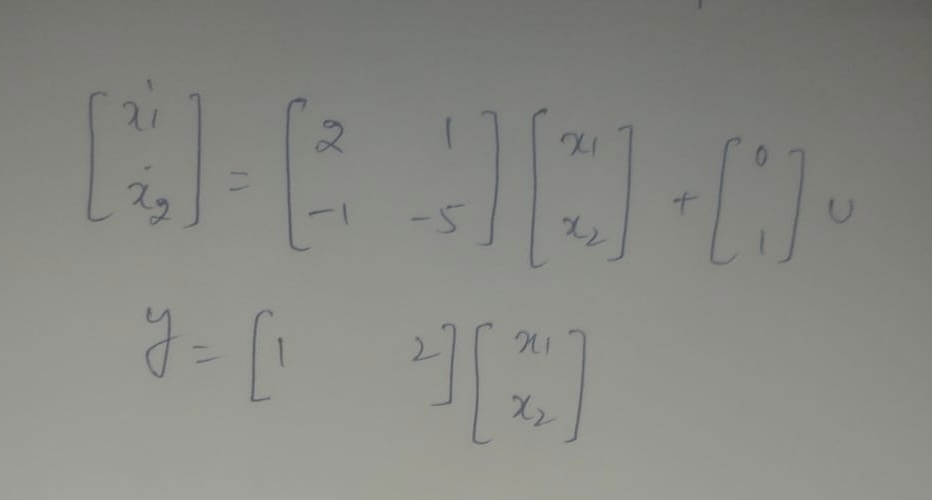 [ẋ1 ẋ2] = [2 1 -1 -5] [x1 x2] + [0 1] u
y = [1 2] [x1 x2]